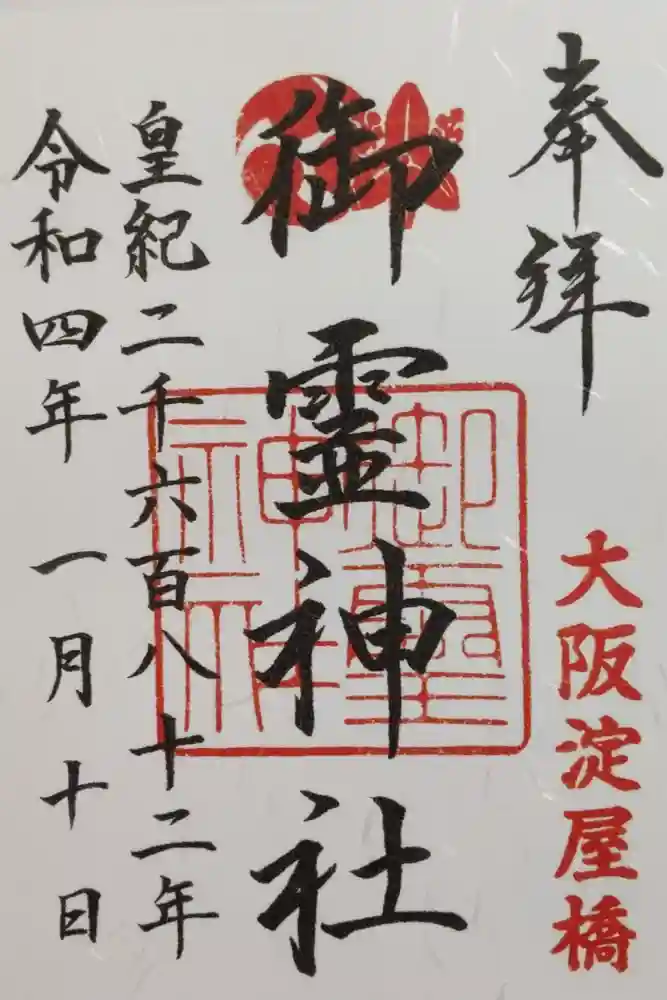 奉拝
大阪淀屋橋
御霊神社
御霊神社
皇紀二千六百八十二年
令和四年一月十日